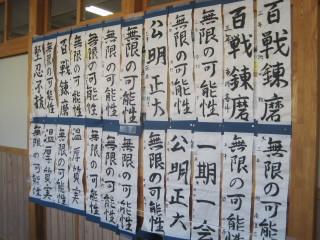 百戰錬磨
無限の可能性
無限の可能性
無限の可能性
公明正大
無限の可能性
無限の可能性
無限の可能性
百戦錬磨
無限の可能性
堅忍不抜
無限の可能性
無限の可能性
一期一会
公明正大
無限の可能性
無限の可能性
無限の可能性
温厚質実
無限の可能性
温厚質実
無限の可能性